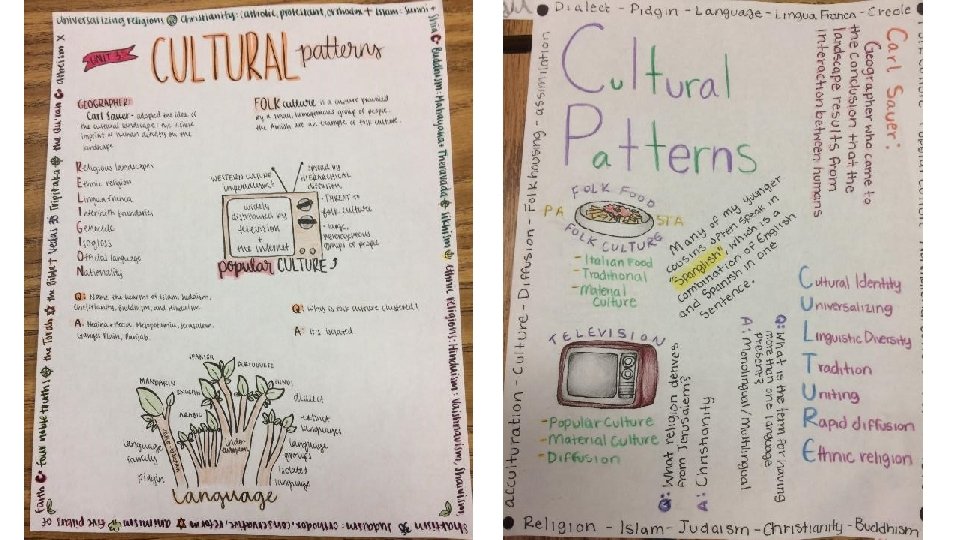 Universalizing religions Christianity: catholic, protestant, orthodox + Islam: Sunni +
Shia Buddhism: Mahayana + Theravada Sikhism ethnic religions: Hinduism: Vaishnavism, Shaivism,
Shaktism Judaism: orthodox, conservative, reform animism five pillars of
faith four noble truths the Torah the Bible Vedas Tripitaka the Quran atheism
UNIT 3:
CULTURAL patterns
GEOGRAPHER:
Carl Sauer - adopted the idea of
the cultural landscape; the
imprint of human activity on the
landscape
FOLK culture is a culture practiced
by a small, homogenous group of people.
the Amish are an example of folk culture.
Religious landscapes
Ethnic religion
Lingua franca
Interfaith boundaries
Genocide
Isogloss
Official language
Nationality
WESTERN CULTURE
spread by
HIERARCHICAL
diffusion
THREAT to
folk culture
large,
heterogeneous
groups of people
widely
distributed by
television
+
the internet
popular CULTURE
Q: Name the hearths of Islam, Judaism,
Christianity, Buddhism, and Hinduism.
A: Medina + Mecca, Mesopotamia, Jerusalem,
Ganges River, Punjab.
Q: Why is
A: It's
SPANISH
PORTUGUESE
MANDARIN
ENGLISH
HINDI
ARABIC
dialect
extinct
languages
language
family
language
groups
pidgin
isolated
language
language
Dialect - Pidgin - Language - Lingua Franca - Creole
acculturation - Culture - Diffusion - Folk housing - assimilation
Cultural
Patterns
Carl Sauer:
Geographer who came to
the conclusion that the
landscape results from
interaction between humans
FOLK FOOD
PA
STA
FOLK CULTURE
- Italian Food
- Traditional
- Material
Culture
Many of my younger
cousins often speak in
"Spanglish" which is a
combination of English
and Spanish in one
sentence.
TELEVISION
- Popular Culture
- Material Culture
- Diffusion
Q: What religion derives
from Jerusalem?
A: Christianity
Q: What is the term for having
more than one language
present?
A: Monolingual/Multilingual
Cultural Identity
Universalizing
Linguistic Diversity
Tradition
Uniting
Rapid diffusion
Ethnic religion
Religion - Islam - Judaism - Christianity - Buddhism